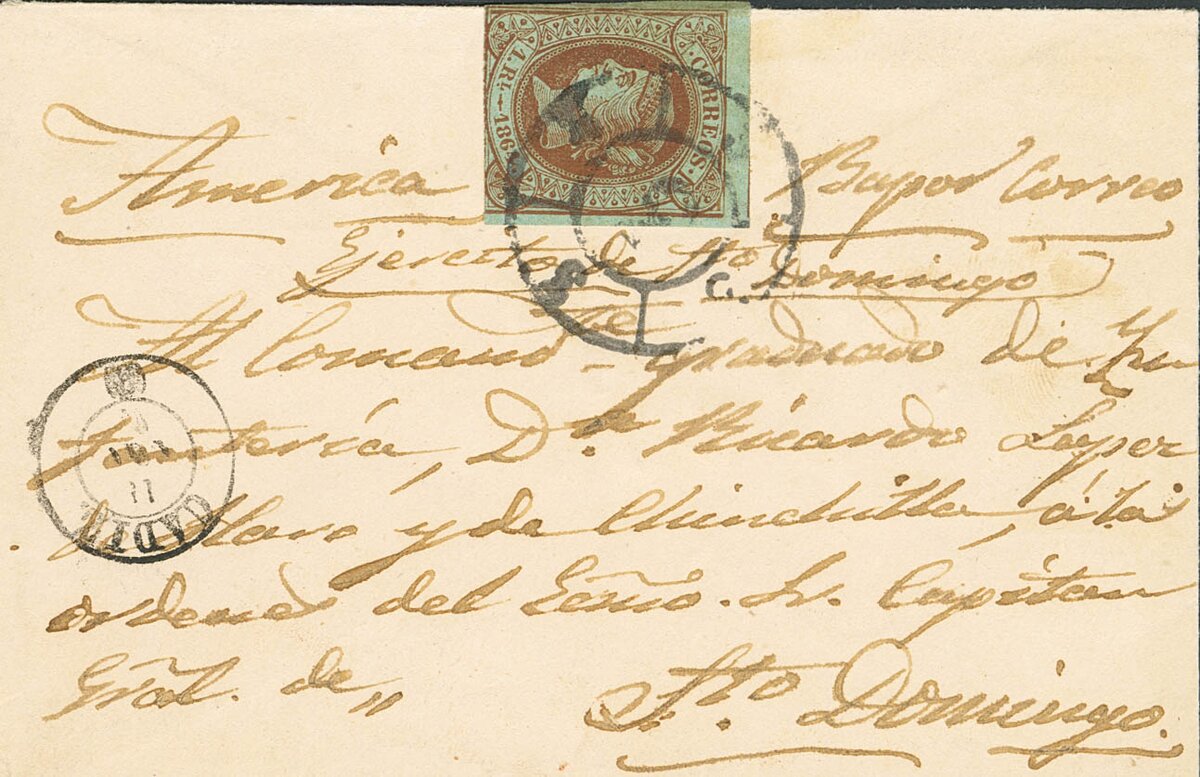 1. Rl. 186
CORREOS.
America Bapor Correo
Ejercito de Sto Domingo
Al Comand.te graduado de Yn
fanteria, D.n Ricardo Lopez
de Haro y de Chinchilla, á la
ordenes del Ecmo. Sr. Capitan
Gral. de " Sto Domingo.
CADIZ
11